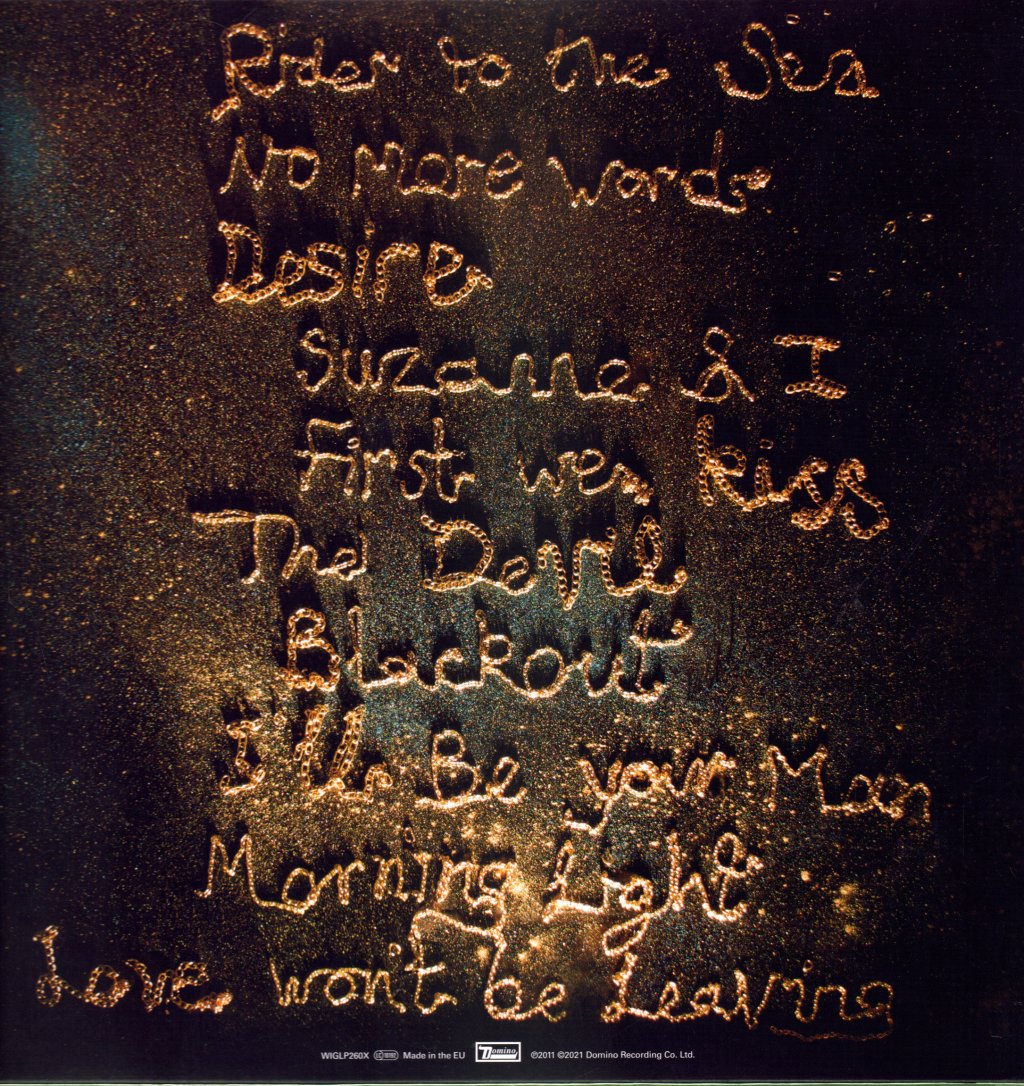 Rider to the Sea
No More Words
Desire
Suzanne & I
First we kiss
The Devil
Blackout
I'll Be your Man
Morning Light
Love won't be Leaving
WIGLP260X LC 11092 Made in the EU Domino ℗2011 ©2021 Domino Recording Co. Ltd.